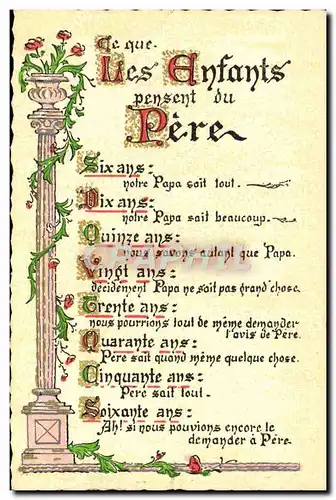 Ce que
Les Enfants
pensent du
Père
Six ans:
notre Papa sait tout.
Dix ans:
notre Papa sait beaucoup.
Quinze ans:
nous savons autant que Papa.
Vingt ans:
décidément Papa ne sait pas grand'chose.
Trente ans:
nous pourrions tout de même demander
l'avis de Père.
Quarante ans:
Père sait quand même quelque chose.
Cinquante ans:
Père sait tout.
Soixante ans:
Ah! si nous pouvions encore le
demander à Père.